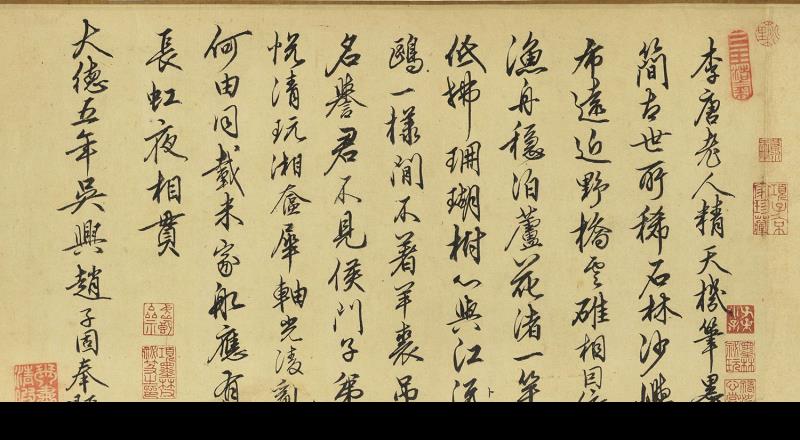 李唐老人精天機筆墨
簡古世所稀石林沙
布遠近野橋雲碓相因
漁舟穩泊蘆花渚一竿
低拂珊瑚樹心與江流
鷗一樣閒不著羊裘吊
名譽君不見侯門子弟
悅清玩湘奩犀軸光凌
何由同載米家船應有
長虹夜相貫
大德五年吳興趙子固奉題